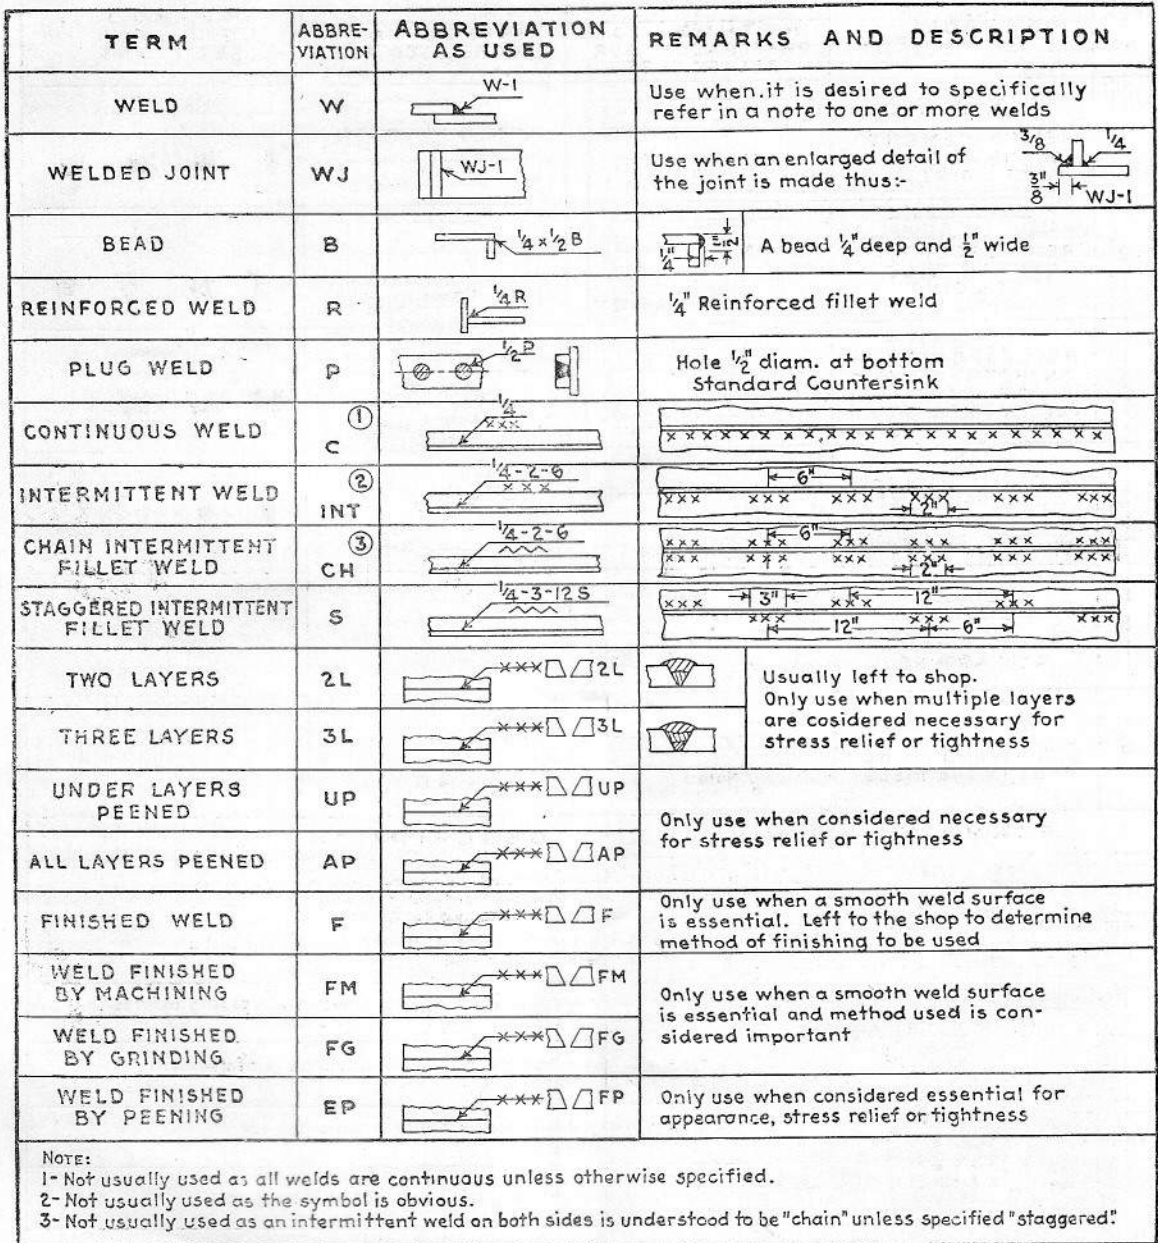 TERM
ABBRE-
VIATION
ABBREVIATION
AS USED
REMARKS AND DESCRIPTION
WELD
W
W-1
Use when.it is desired to specifically
refer in a note to one or more welds
WELDED JOINT
WJ
WJ-1
Use when an enlarged detail of
the joint is made thus:-
3/8
1/4
3"/8
WJ-1
BEAD
B
1/4 x 1/2 B
1/4"
1/2"
A bead 1/4" deep and 1/2" wide
REINFORCED WELD
R
1/4 R
1/4" Reinforced fillet weld
PLUG WELD
P
1/2 P
Hole 1/2" diam. at bottom
Standard Countersink
CONTINUOUS WELD
①
C
1/4
xxx
x x x x x x x x x x x x x x x x x x x x
INTERMITTENT WELD
②
INT
1/4-2-6
x x x
6"
xxx xxx xxx xxx xxx xxx
2"
CHAIN INTERMITTENT
FILLET WELD
③
CH
1/4-2-6
6"
xxx xxx xxx xxx xxx xxx
xxx xxx xxx xxx xxx xxx
2"
STAGGERED INTERMITTENT
FILLET WELD
S
1/4-3-12 S
3"
12"
xxx xxx xxx
xxx xxx xxx
12"
6"
TWO LAYERS
2L
xxx 2L
Usually left to shop.
Only use when multiple layers
are cosidered necessary for
stress relief or tightness
THREE LAYERS
3L
xxx 3L
UNDER LAYERS
PEENED
UP
xxx UP
Only use when considered necessary
for stress relief or tightness
ALL LAYERS PEENED
AP
xxx AP
FINISHED WELD
F
xxx F
Only use when a smooth weld surface
is essential. Left to the shop to determine
method of finishing to be used
WELD FINISHED
BY MACHINING
FM
xxx FM
Only use when a smooth weld surface
is essential and method used is con-
sidered important
WELD FINISHED
BY GRINDING
FG
xxx FG
WELD FINISHED
BY PEENING
EP
xxx FP
Only use when considered essential for
appearance, stress relief or tightness
NOTE:
1- Not usually used as all welds are continuous unless otherwise specified.
2- Not usually used as the symbol is obvious.
3- Not usually used as an intermittent weld on both sides is understood to be "chain" unless specified "staggered".